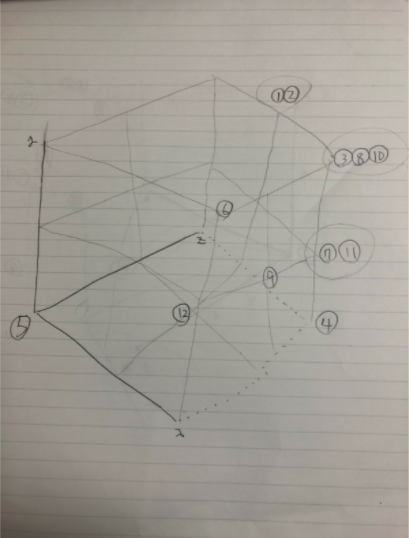 ① ②
y
③ ⑧ ⑩
⑥
z
⑦ ⑪
⑨
⑫
④
⑤
x